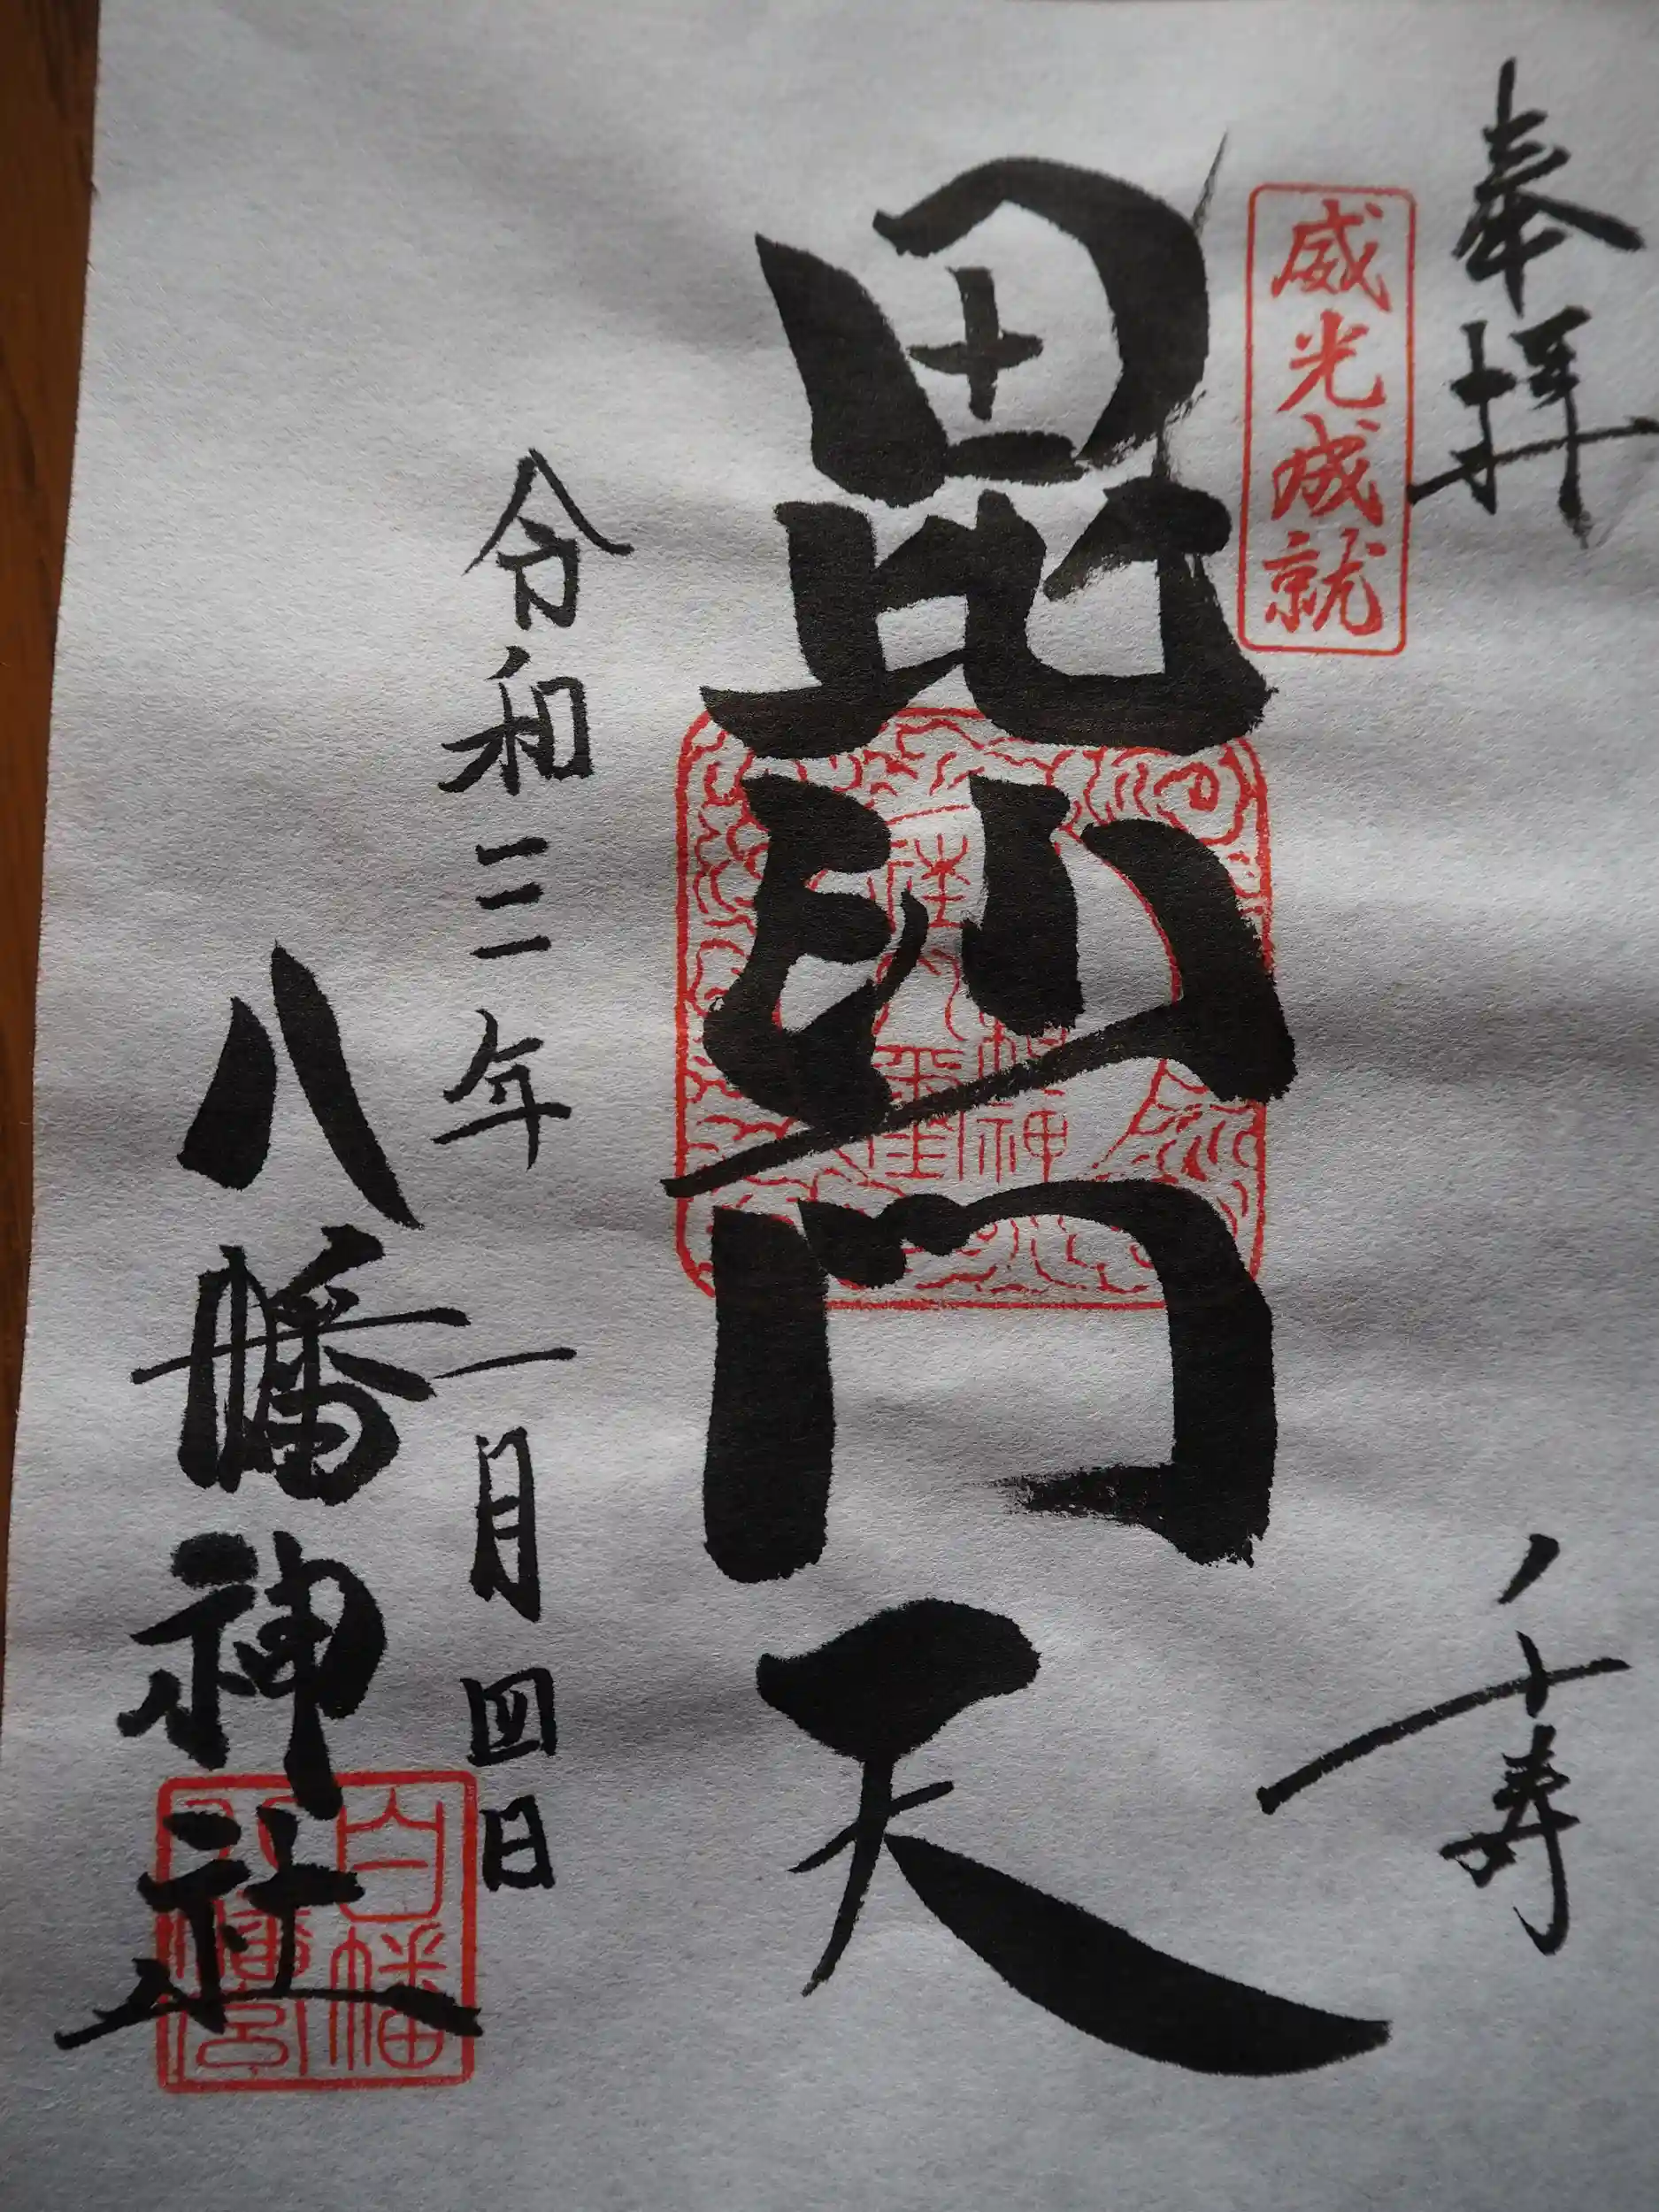 奉拝
八十寿
威光成就
毘沙門天
令和三年一月四日
八幡神社
白幡
八幡宮